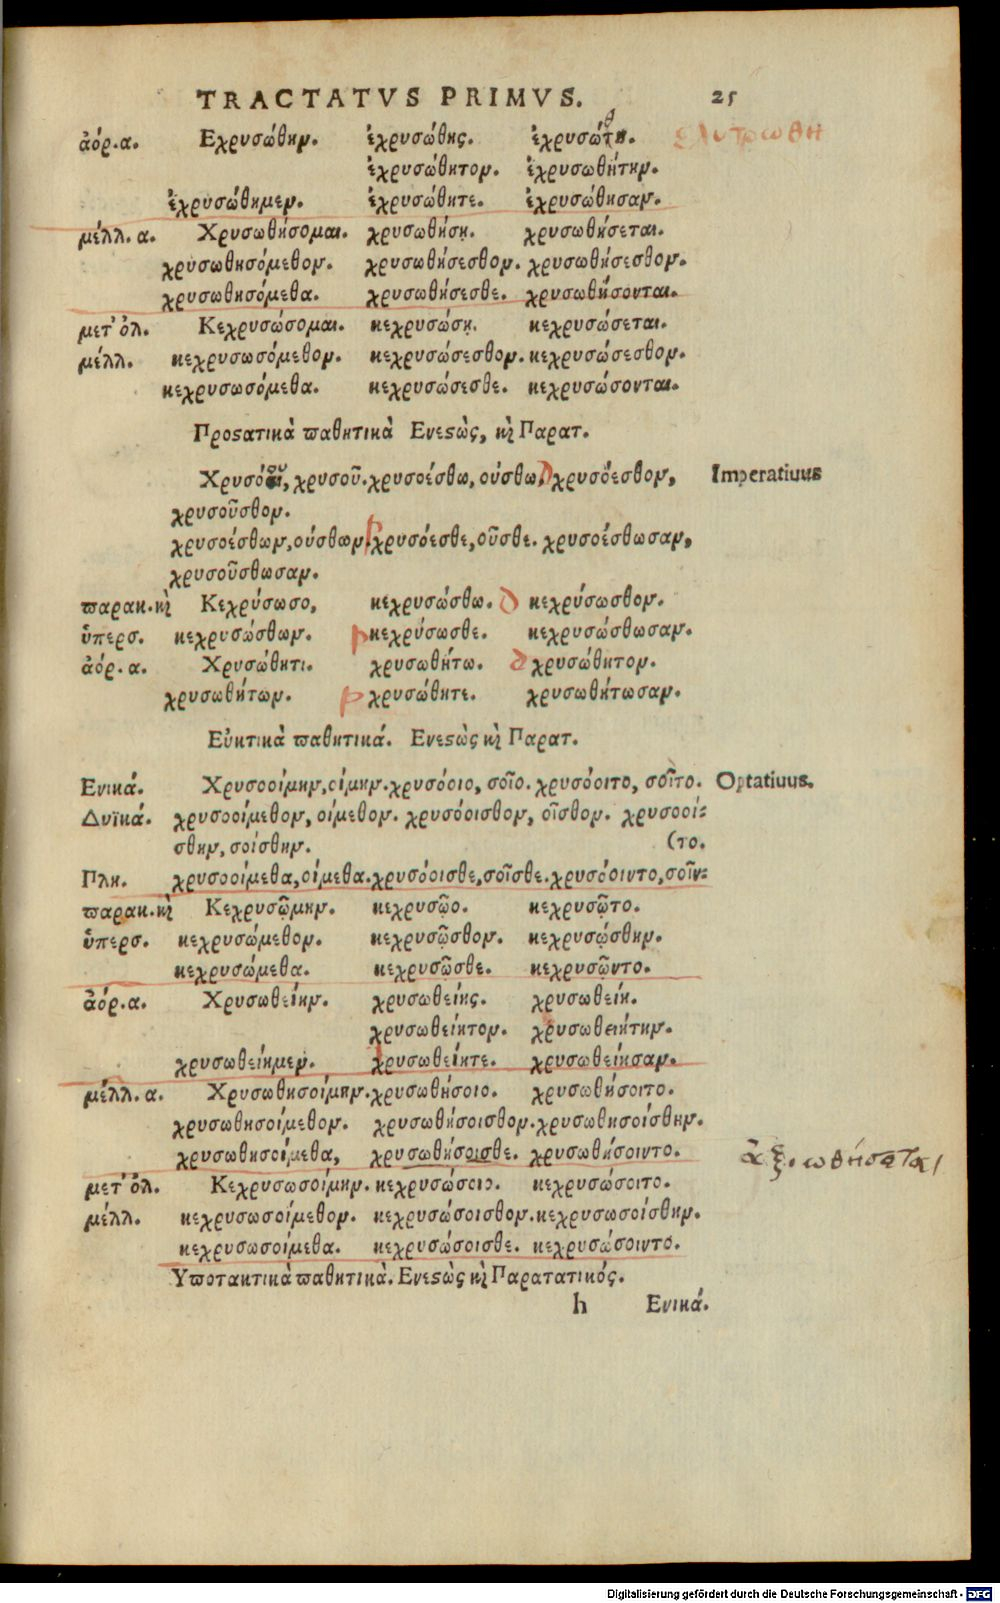 TRACTATVS PRIMVS. 25
ἀόρ.α. Εχρυσώθην. ἐχρυσώθης. ἐχρυσώτη. ἐλυτρώθη
ἐχρυσώθητον. ἐχρυσωθήτην.
ἐχρυσώθημεν. ἐχρυσώθητε. ἐχρυσώθησαν.
μέλλ. α. Χρυσωθήσομαι. χρυσωθήσῃ. χρυσωθήσεται.
χρυσωθησόμεθον. χρυσωθήσεσθον. χρυσωθήσεσθον.
χρυσωθησόμεθα. χρυσωθήσεσθε. χρυσωθήσονται.
μετ' ὀλ. Κεχρυσώσομαι. κεχρυσώσῃ. κεχρυσώσεται.
μέλλ. κεχρυσωσόμεθον. κεχρυσώσεσθον. κεχρυσώσεσθον.
κεχρυσωσόμεθα. κεχρυσώσεσθε. κεχρυσώσονται.
Προϛατικὰ παθητικὰ Ενεϛὼς, κὶ Παρατ.
Χρυσόου, χρυσοῦ. χρυσοέσθω, ούσθω, χρυσόεσθον, Imperatiuus
χρυσοῦσθον.
χρυσοέσθων, ούσθων. χρυσόεσθε, οῦσθε. χρυσοέσθωσαν,
χρυσοῦσθωσαν.
παρακ. κὶ Κεχρύσωσο, κεχρυσώσθω. κεχρύσωσθον.
ὑπερσ. κεχρυσώσθων. κεχρύσωσθε. κεχρυσώσθωσαν.
ἀόρ. α. Χρυσώθητι. χρυσωθήτω. χρυσώθητον.
χρυσωθήτων. χρυσώθητε. χρυσωθήτωσαν.
Εὐκτικὰ παθητικά. Ενεϛὼς κὶ Παρατ.
Ενικά. Χρυσοοίμην, οίμην. χρυσόοιο, σοῖο. χρυσόοιτο, σοῖτο. Optatiuus.
Δυϊκά. χρυσοοίμεθον, οίμεθον. χρυσόοισθον, οῖσθον. χρυσοοί:
σθην, σοίσθην. (το.
Πλη. χρυσοοίμεθα, οίμεθα. χρυσόοισθε, σοῖσθε. χρυσόοιντο, σοῖν:
παρακ. κὶ Κεχρυσῴμην. κεχρυσῷο. κεχρυσῷτο.
ὑπερσ. κεχρυσώμεθον. κεχρυσῷσθον. κεχρυσῴσθην.
κεχρυσώμεθα. κεχρυσῷσθε. κεχρυσῷντο.
ἀόρ. α. Χρυσωθείην. χρυσωθείης. χρυσωθείη.
χρυσωθείητον. χρυσωθειήτην.
χρυσωθείημεν. χρυσωθείητε. χρυσωθείησαν.
μέλλ. α. Χρυσωθησοίμην. χρυσωθήσοιο. χρυσωθήσοιτο.
χρυσωθησοίμεθον. χρυσωθήσοισθον. χρυσωθησοίσθην.
χρυσωθησοίμεθα, χρυσωθήσοισθε. χρυσωθήσοιντο. ἀξιωθήσεται
μετ' ὀλ. Κεχρυσωσοίμην. κεχρυσώσοιο. κεχρυσώσοιτο.
μέλλ. κεχρυσωσοίμεθον. κεχρυσώσοισθον. κεχρυσωσοίσθην.
κεχρυσωσοίμεθα. κεχρυσώσοισθε. κεχρυσώσοιντο.
Υποτακτικὰ παθητικὰ. Ενεϛὼς κὶ Παρατατικός.
h Ενικά.
Digitalisierung gefördert durch die Deutsche Forschungsgemeinschaft - DFG